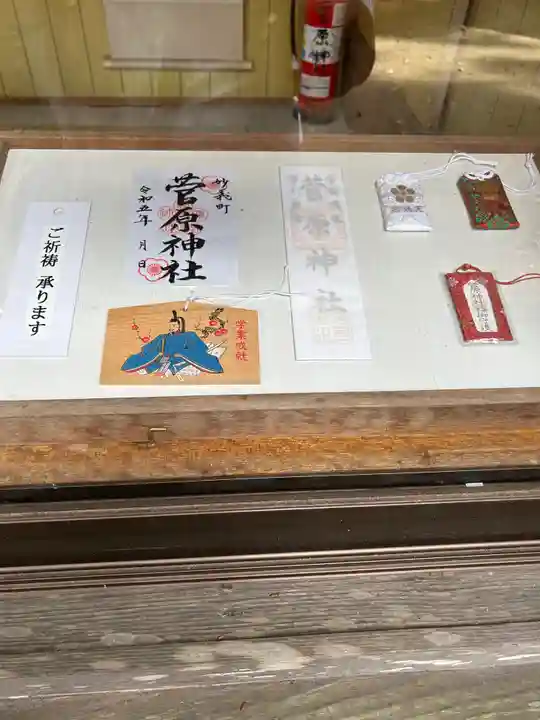 ご祈祷 承ります
妙義町
菅原神社
令和五年 月 日
学業成就
菅原神社